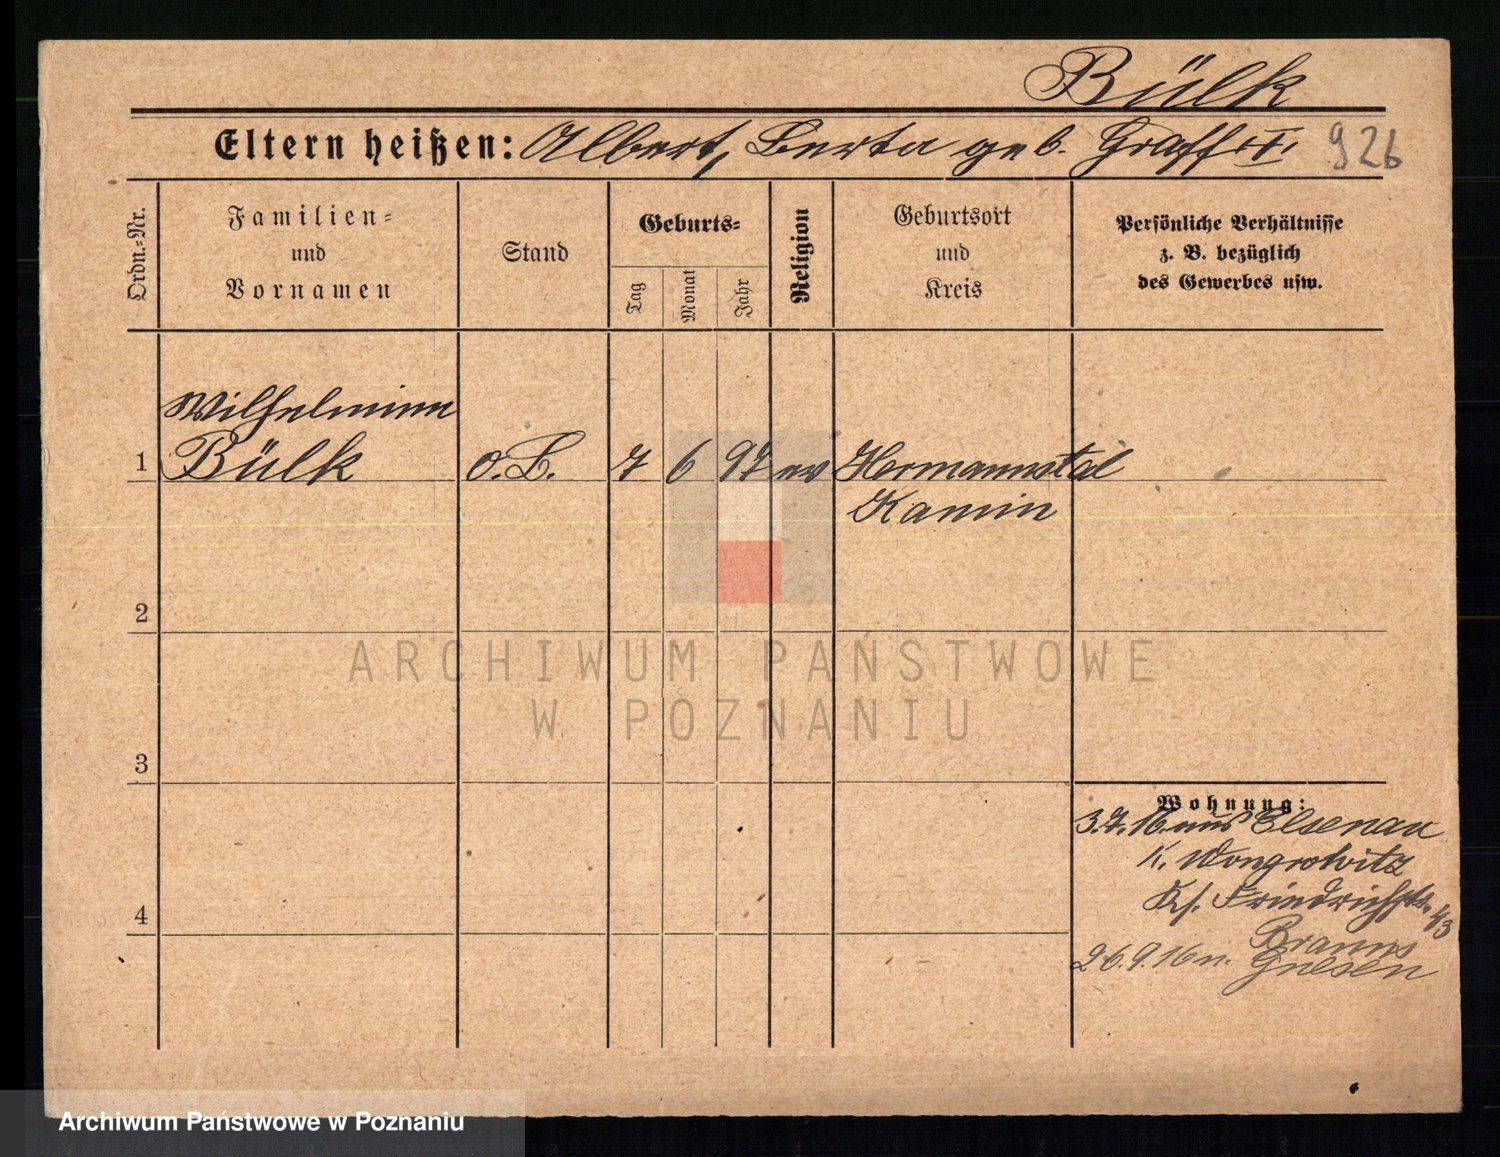 Bülk
Eltern heißen: Albert, Berta geb. Graff II. 926
Ordn.-Nr.
Familien-
und
Vornamen
Stand
Geburts-
Tag
Monat
Jahr
Religion
Geburtsort
und
Kreis
Persönliche Verhältnisse
z. B. bezüglich
des Gewerbes usw.
Wilhelmine
1 Bülk o. B. 7 6 97 ev Hermannstal
Kamin
2
3
4
Wohnung:
3.7.16 aus Elsenau
K. Wongrowitz
Friedrichstr. 43
Brauns
26.9.16 n. Gnesen
ARCHIWUM PAŃSTWOWE
W POZNANIU
Archiwum Państwowe w Poznaniu